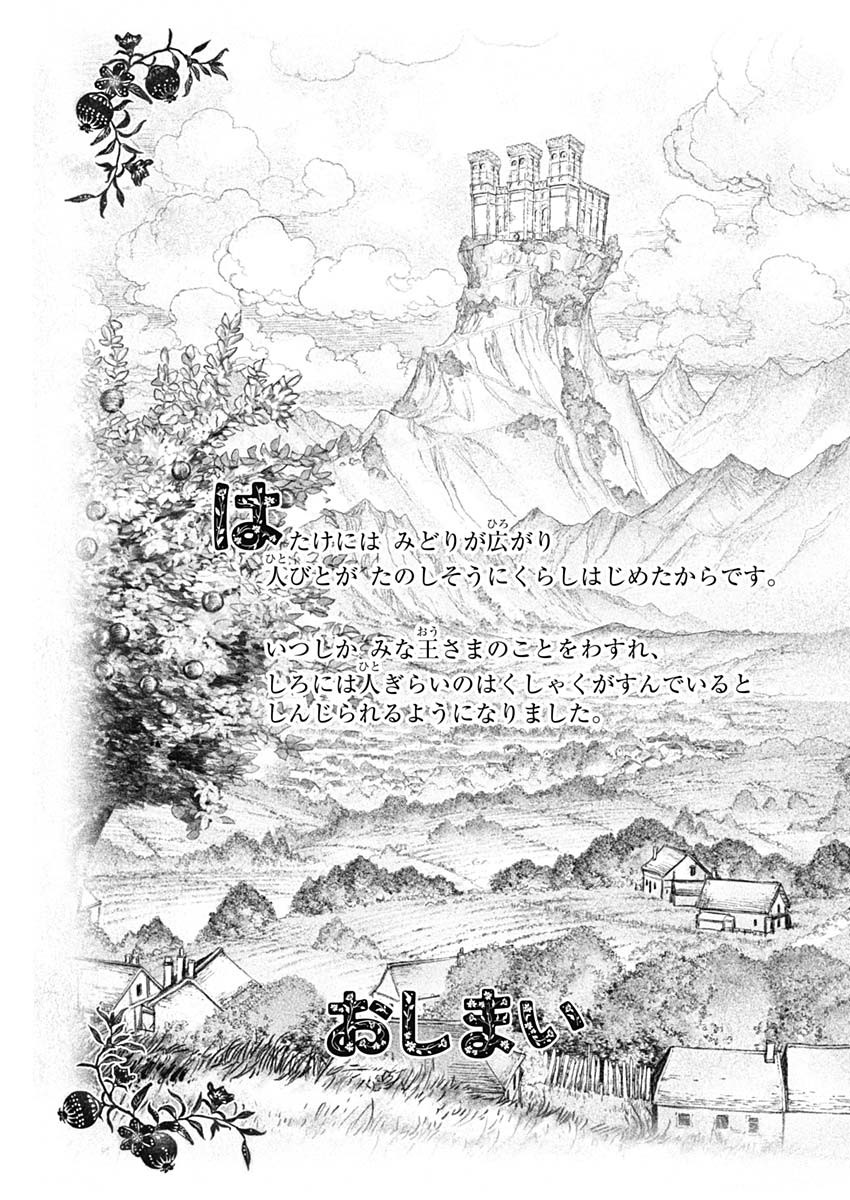 はたけには みどりが広がり
人びとが たのしそうにくらしはじめたからです。
いつしか みな王さまのことをわすれ、
しろには人ぎらいのはくしゃくがすんでいると
しんじられるようになりました。
おしまい